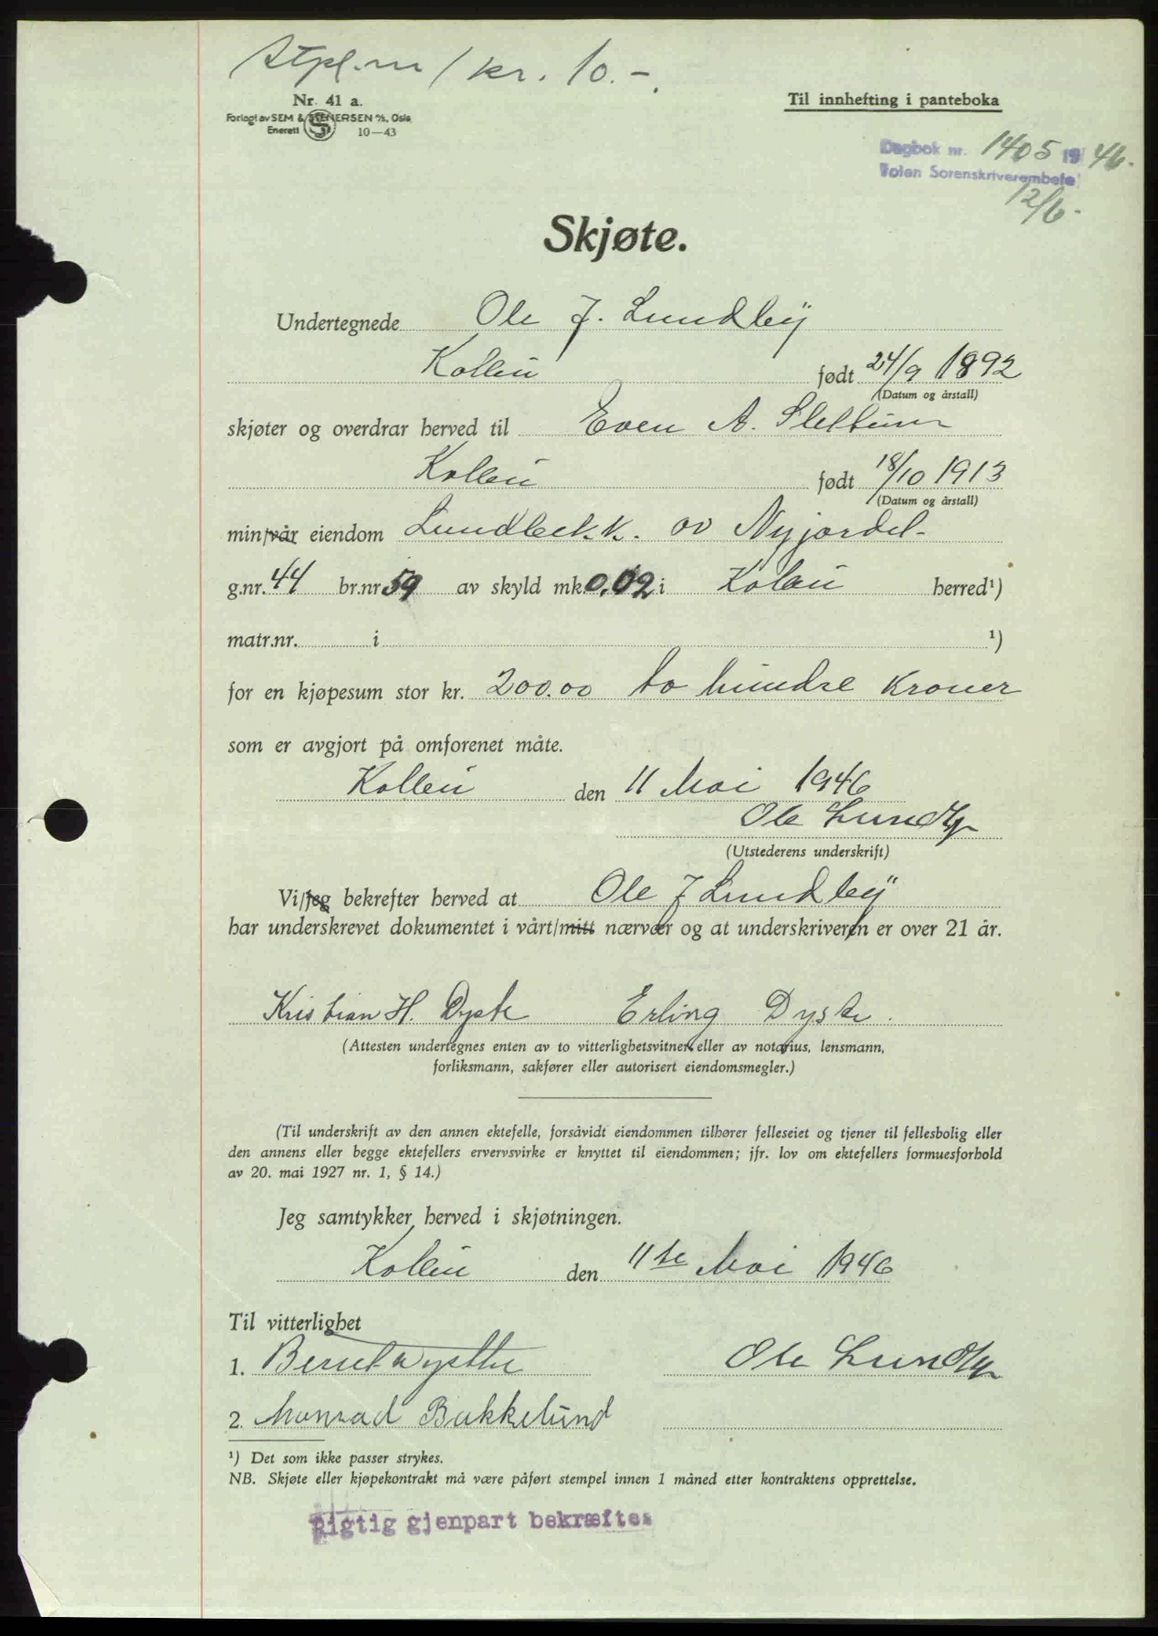 Stpl.m / kr. 10.-.
Nr. 41 a.
Forlagt av SEM & STENERSEN A/S, Oslo
Enerett 10—43
Til innhefting i panteboka
Dagbok nr. 1405 1946.
Toten Sorenskriverembete
12/6.
Skjøte.
Undertegnede Ole J. Lundbÿ
Kolbu født 24/9 1892
(Datum og årstall)
skjøter og overdrar herved til Even A. Slettum
Kolbu født 18/10 1913
(Datum og årstall)
min/vår eiendom Lundbekk. av Nyjordet
g.nr. 44 br.nr 59 av skyld mk. 0.02 i Kolbu herred¹)
matr.nr. i ¹)
for en kjøpesum stor kr. 200.00 to hundre kroner
som er avgjort på omforenet måte.
Kolbu den 11 Mai 1946
Ole Lundby
(Utstederens underskrift)
Vi/jeg bekrefter herved at Ole J Lundbÿ
har underskrevet dokumentet i vårt/mitt nærvær og at underskriveren er over 21 år.
Kristian H. Dyste Erling Dyste.
(Attesten undertegnes enten av to vitterlighetsvitner eller av notarius, lensmann,
forliksmann, sakfører eller autorisert eiendomsmegler.)
(Til underskrift av den annen ektefelle, forsåvidt eiendommen tilhører felleseiet og tjener til fellesbolig eller
den annens eller begge ektefellers ervervsvirke er knyttet til eiendommen; jfr. lov om ektefellers formuesforhold
av 20. mai 1927 nr. 1, § 14.)
Jeg samtykker herved i skjøtningen.
Kolbu den 11te Mai 1946
Til vitterlighet
1. Ole Lundby
2. Monrad Bakkelund
¹) Det som ikke passer strykes.
NB. Skjøte eller kjøpekontrakt må være påført stempel innen 1 måned etter kontraktens opprettelse.
Rigtig gjenpart bekræftes